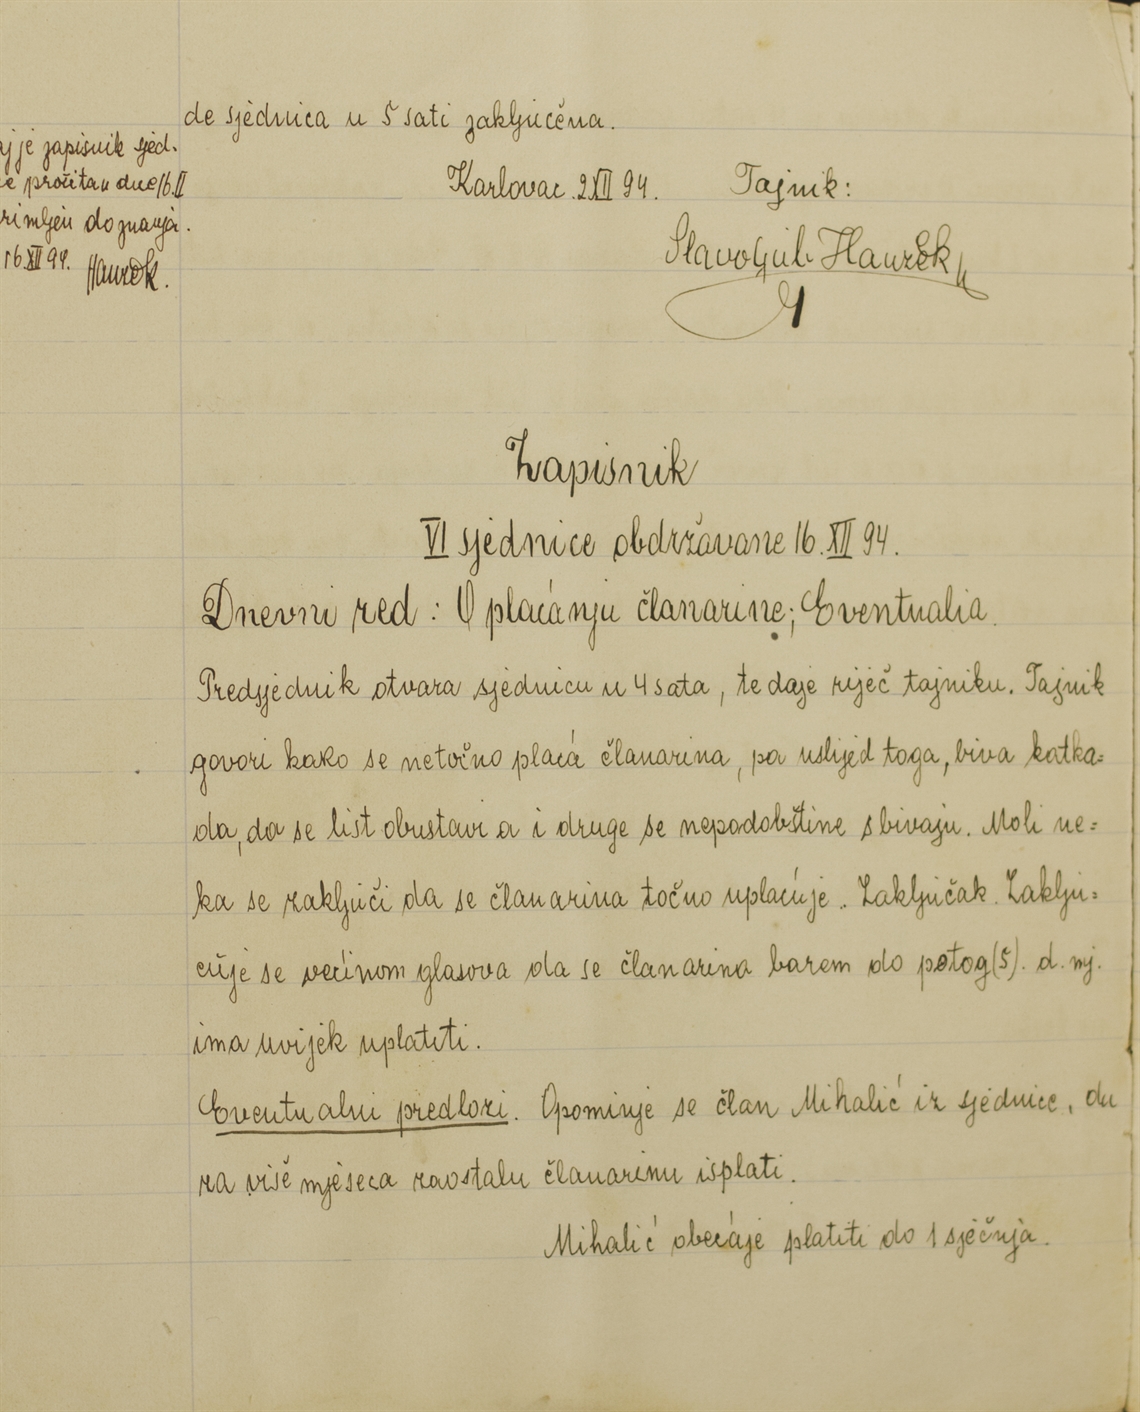 de sjednica u 5 sati zaključena.
aj je zapisnik sjed.
e pročitan dne 16.II
rimljen do znanja.
16.XII 94. Hauzek.
Karlovac 2 XII 94. Tajnik:
Slavoljub Hauzek
Zapisnik
VI sjednice obdržavane 16. XII 94.
Dnevni red: O plaćanju članarine; Eventualia.
Predsjednik otvara sjednicu u 4 sata, te daje riječ tajniku. Tajnik
govori kako se netočno plaća članarina, pa uslijed toga, biva katka=
da, da se list obustavi a i druge se nepodobštine sbivaju. Moli ne=
ka se zaključi da se članarina točno uplaćuje.. Zaključak. Zaklju=
čuje se većinom glasova da se članarina barem do petog (5). d. mj.
ima uvijek uplatiti.
Eventualni predlozi. Opominje se član Mihalić iz sjednice, da
za više mjeseca zaostalu članarinu isplati.
Mihalić obećaje platiti do 1 sječnja.